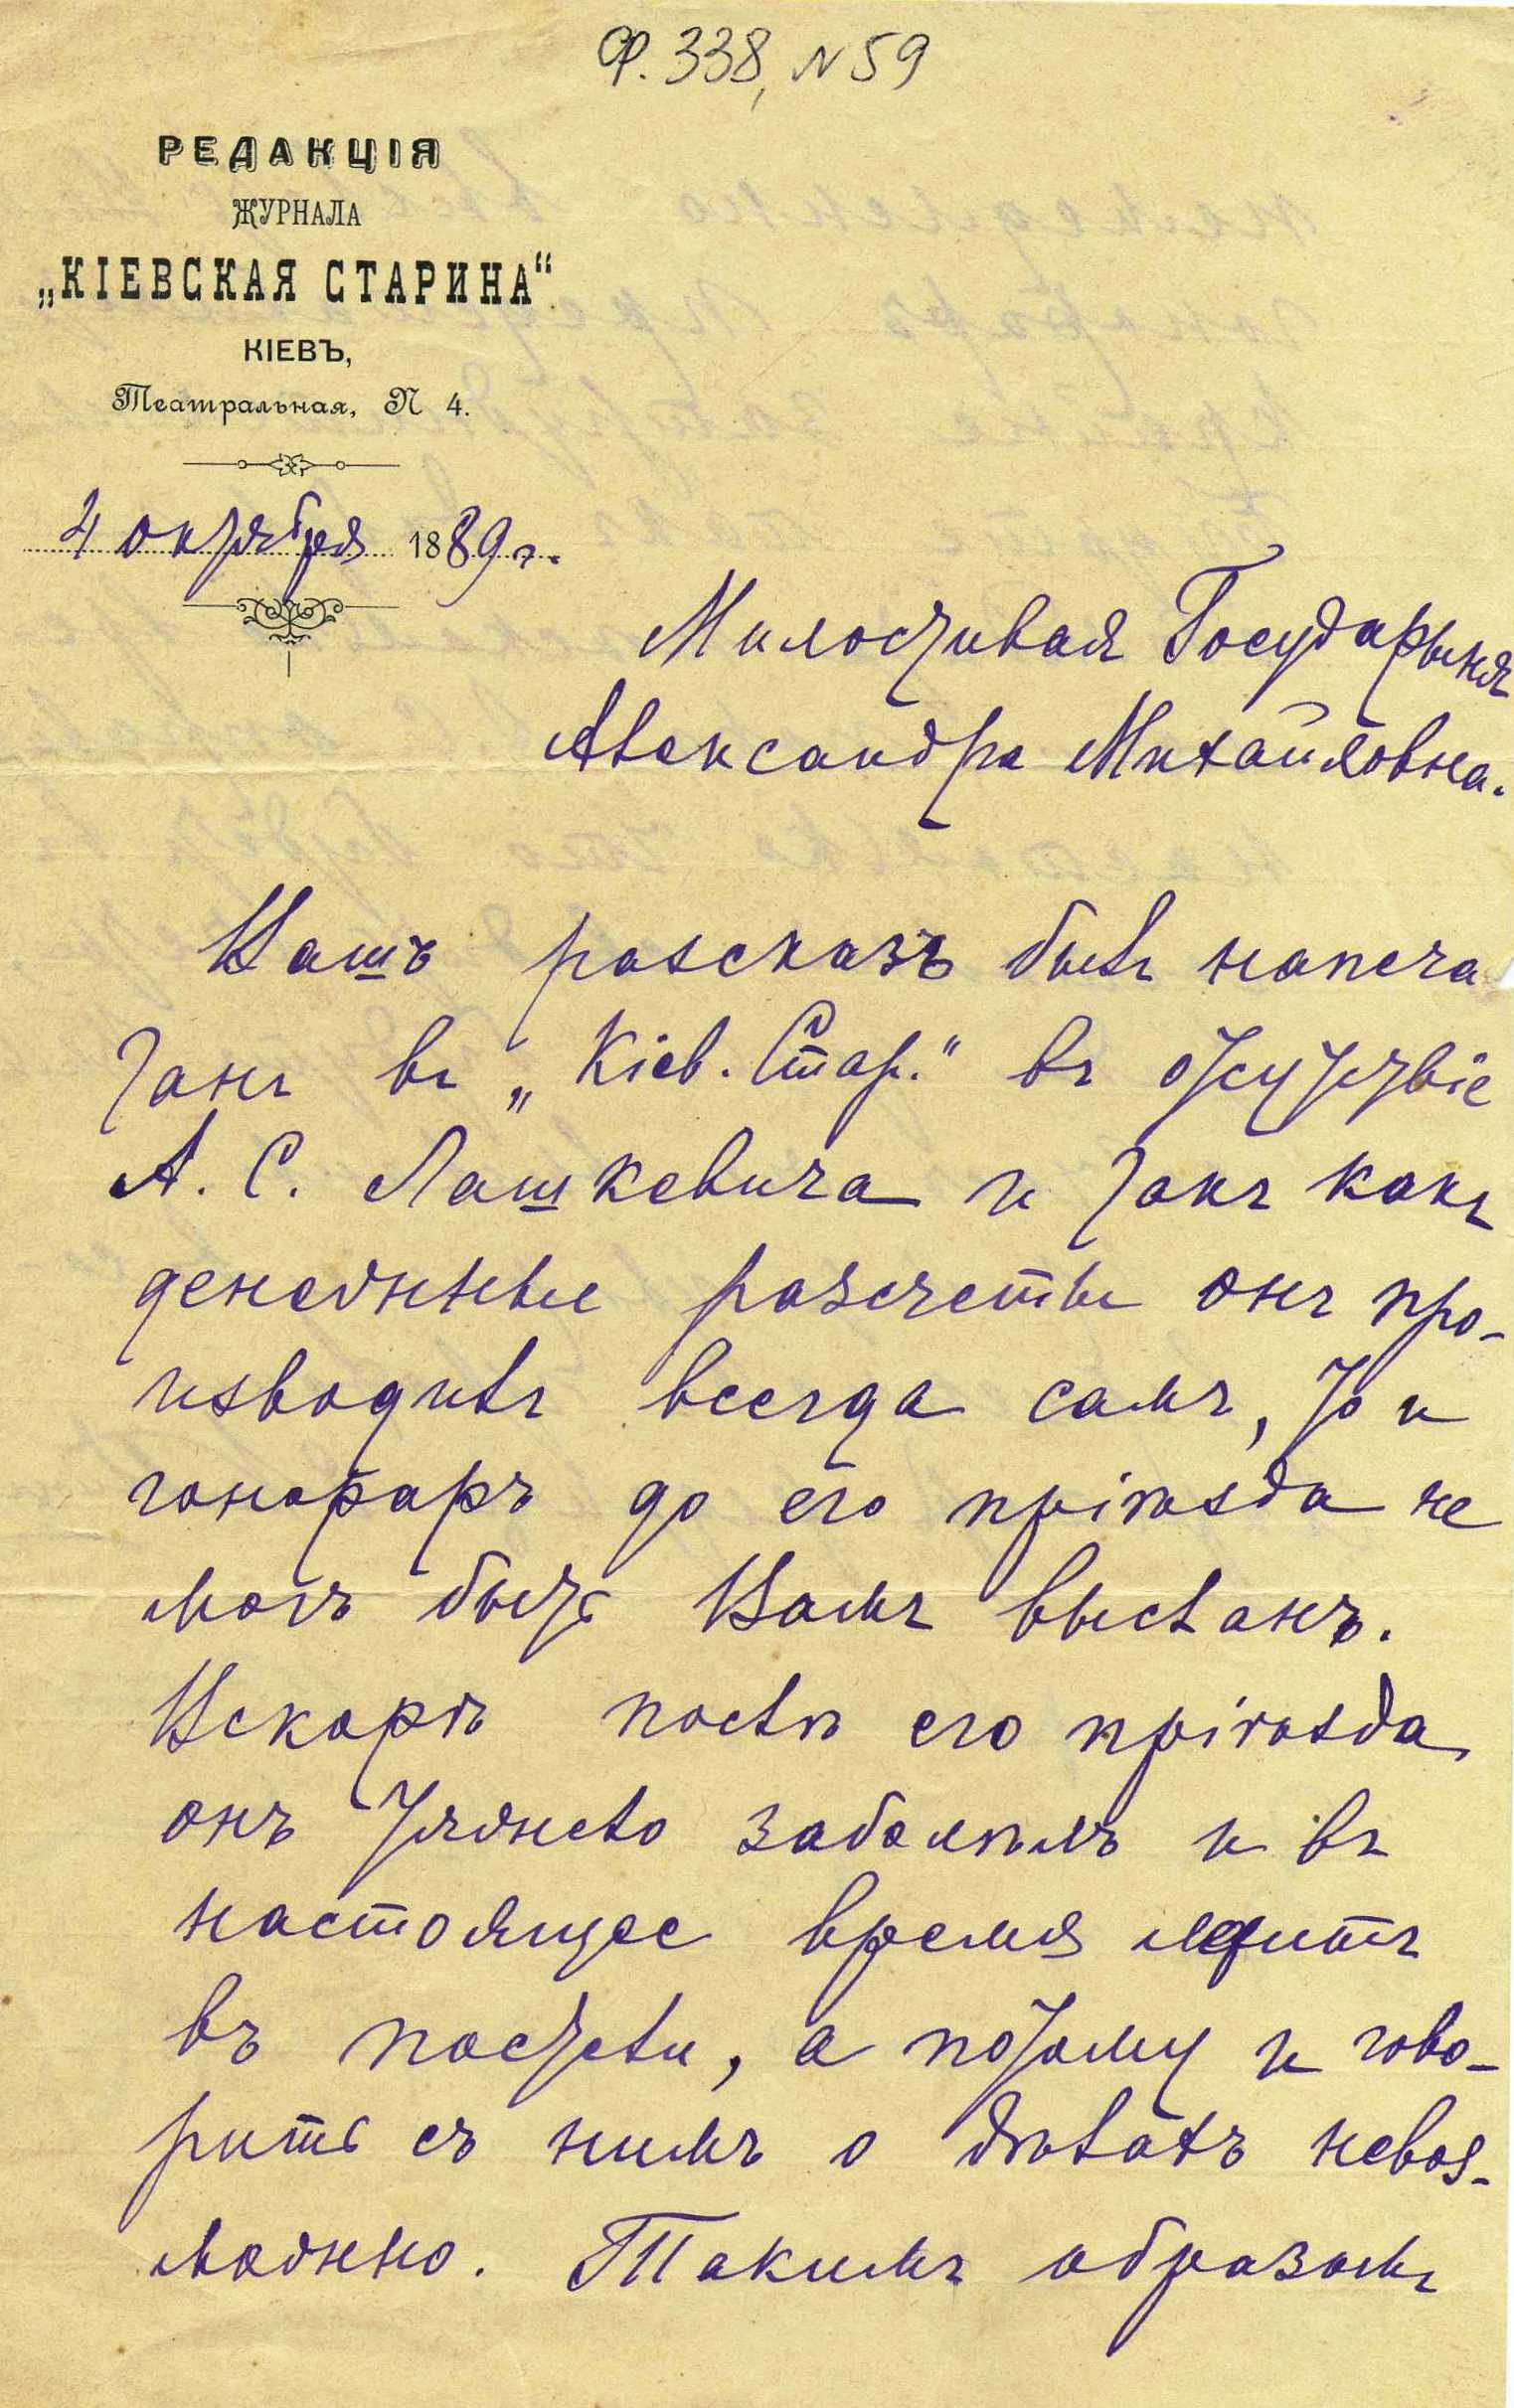 Ф. 338, N 59
РЕДАКЦІЯ
ЖУРНАЛА
„КІЕВСКАЯ СТАРИНА“
КІЕВЪ,
Театральная, № 4.
4 октября 1889 г.
Милостивая Государыня
Александра Михайловна.
Вашъ разсказъ былъ напеча
танъ въ „Кіев. Стар.“ въ отсутствіе
А. С. Лашкевича и такъ какъ
денежные разсчеты онъ про-
изводилъ всегда самъ, то и
гонораръ до его пріѣзда не
могъ быть Вамъ высланъ.
Вскорѣ послѣ его пріѣзда
онъ тяжело заболѣлъ и въ
настоящее время лежитъ
въ постели, а потому и гово-
рить съ нимъ о дѣлахъ невоз-
можно. Такимъ образомъ